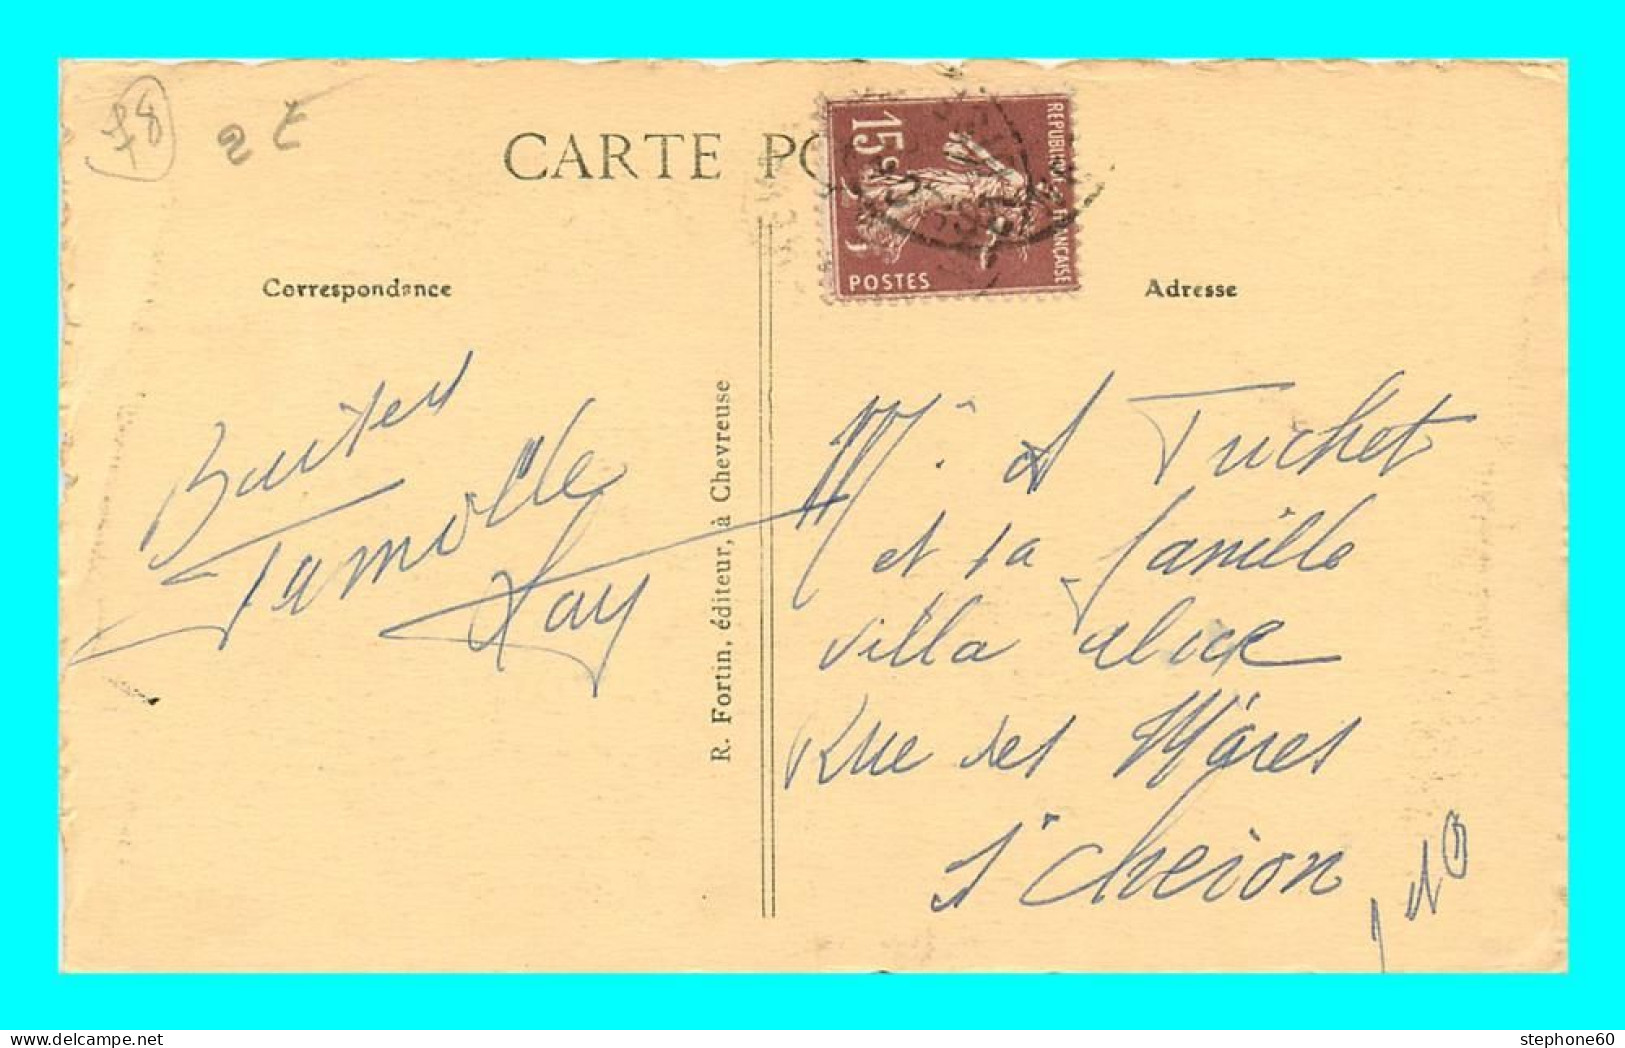 78
2 €
CARTE PO
15c
REPUBLIQUE FRANÇAISE
POSTES
Correspondance
Adresse
R. Fortin, éditeur, à Chevreuse
Famille
Mr A Tuchet
et sa famille
villa alice
Rue des Mares
St Cheron
stephone60